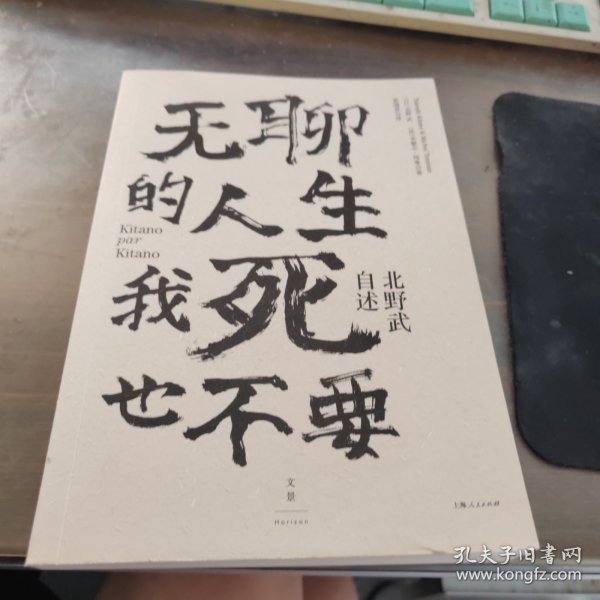 无聊
的人生
我死
也不要
Kitano
par
Kitano
北野武
自述
文景
Horizon
上海人民出版社
孔夫子旧书网
www.kongfz.com